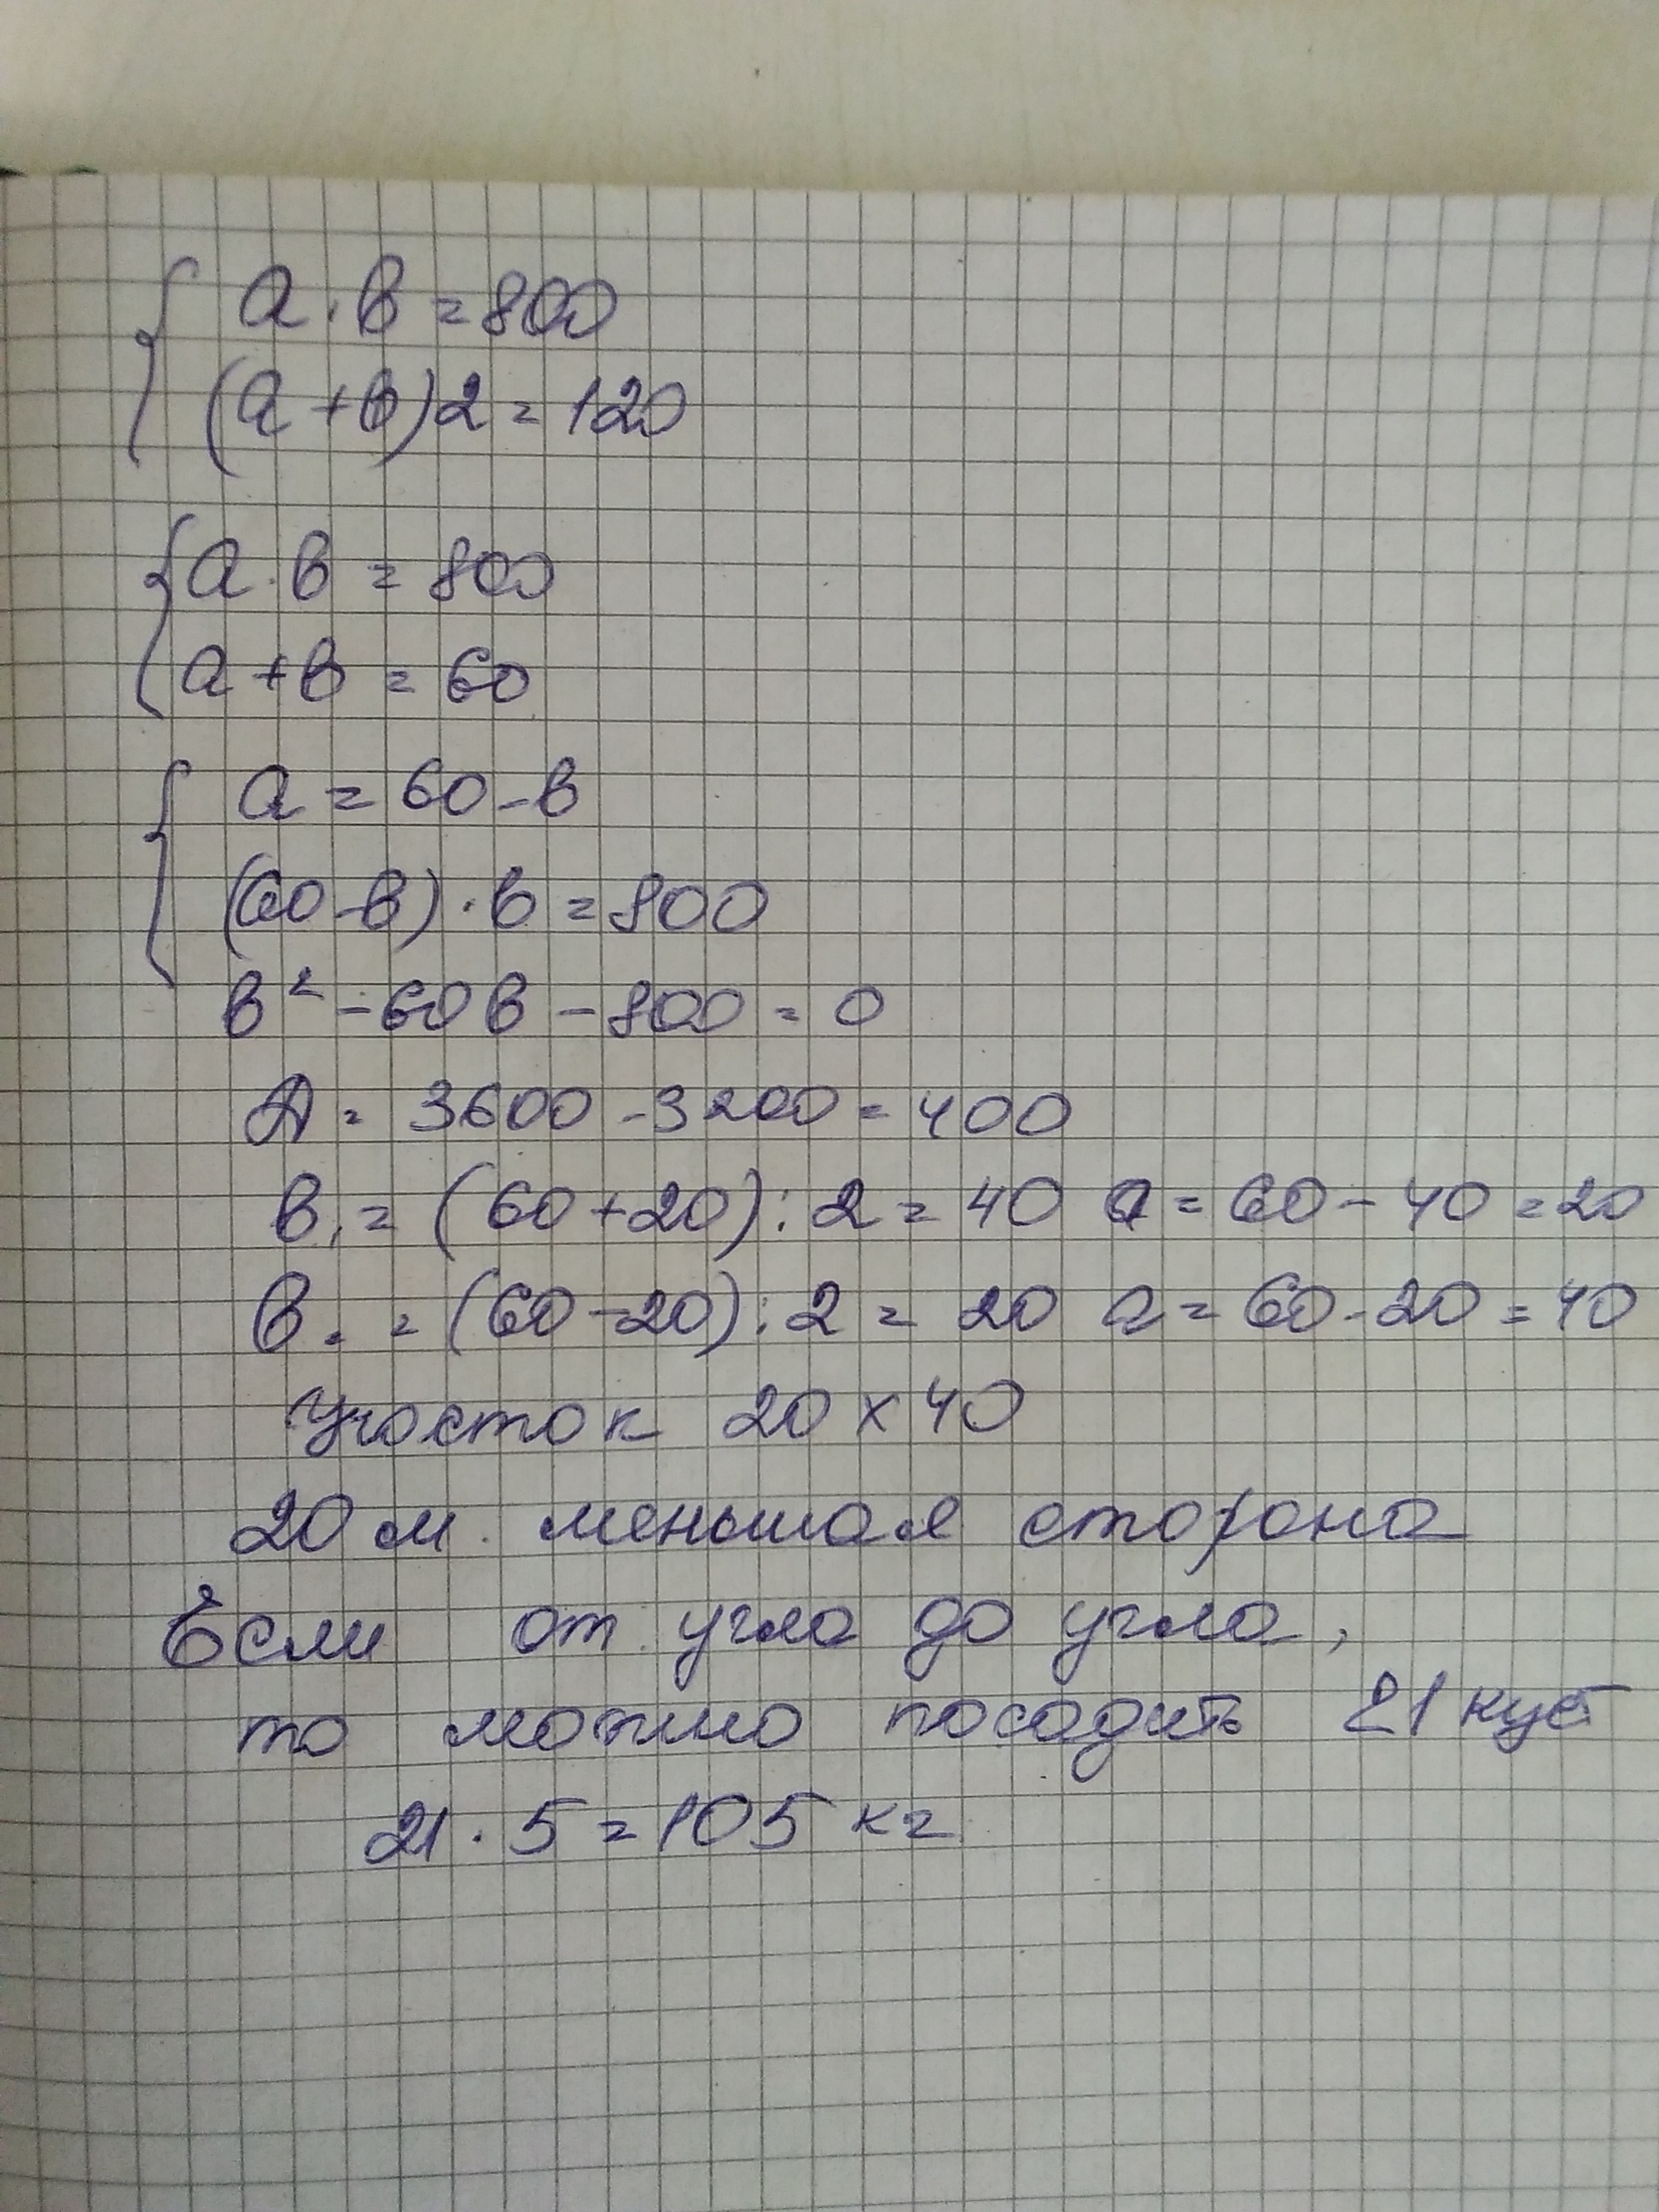 { a · в = 800
(a + в) 2 = 120
{ a · в = 800
a + в = 60
{ a = 60 - в
(60 - в) · в = 800
в² - 60в - 800 = 0
Д = 3600 - 3200 = 400
в₁ = (60 + 20) : 2 = 40 a = 60 - 40 = 20
в. = (60 - 20) : 2 = 20 a = 60 - 20 = 40
Участок 20 x 40
20 м. меньшая сторона
Если от угла до угла,
то можно посадить 21 куст
21 · 5 = 105 кг